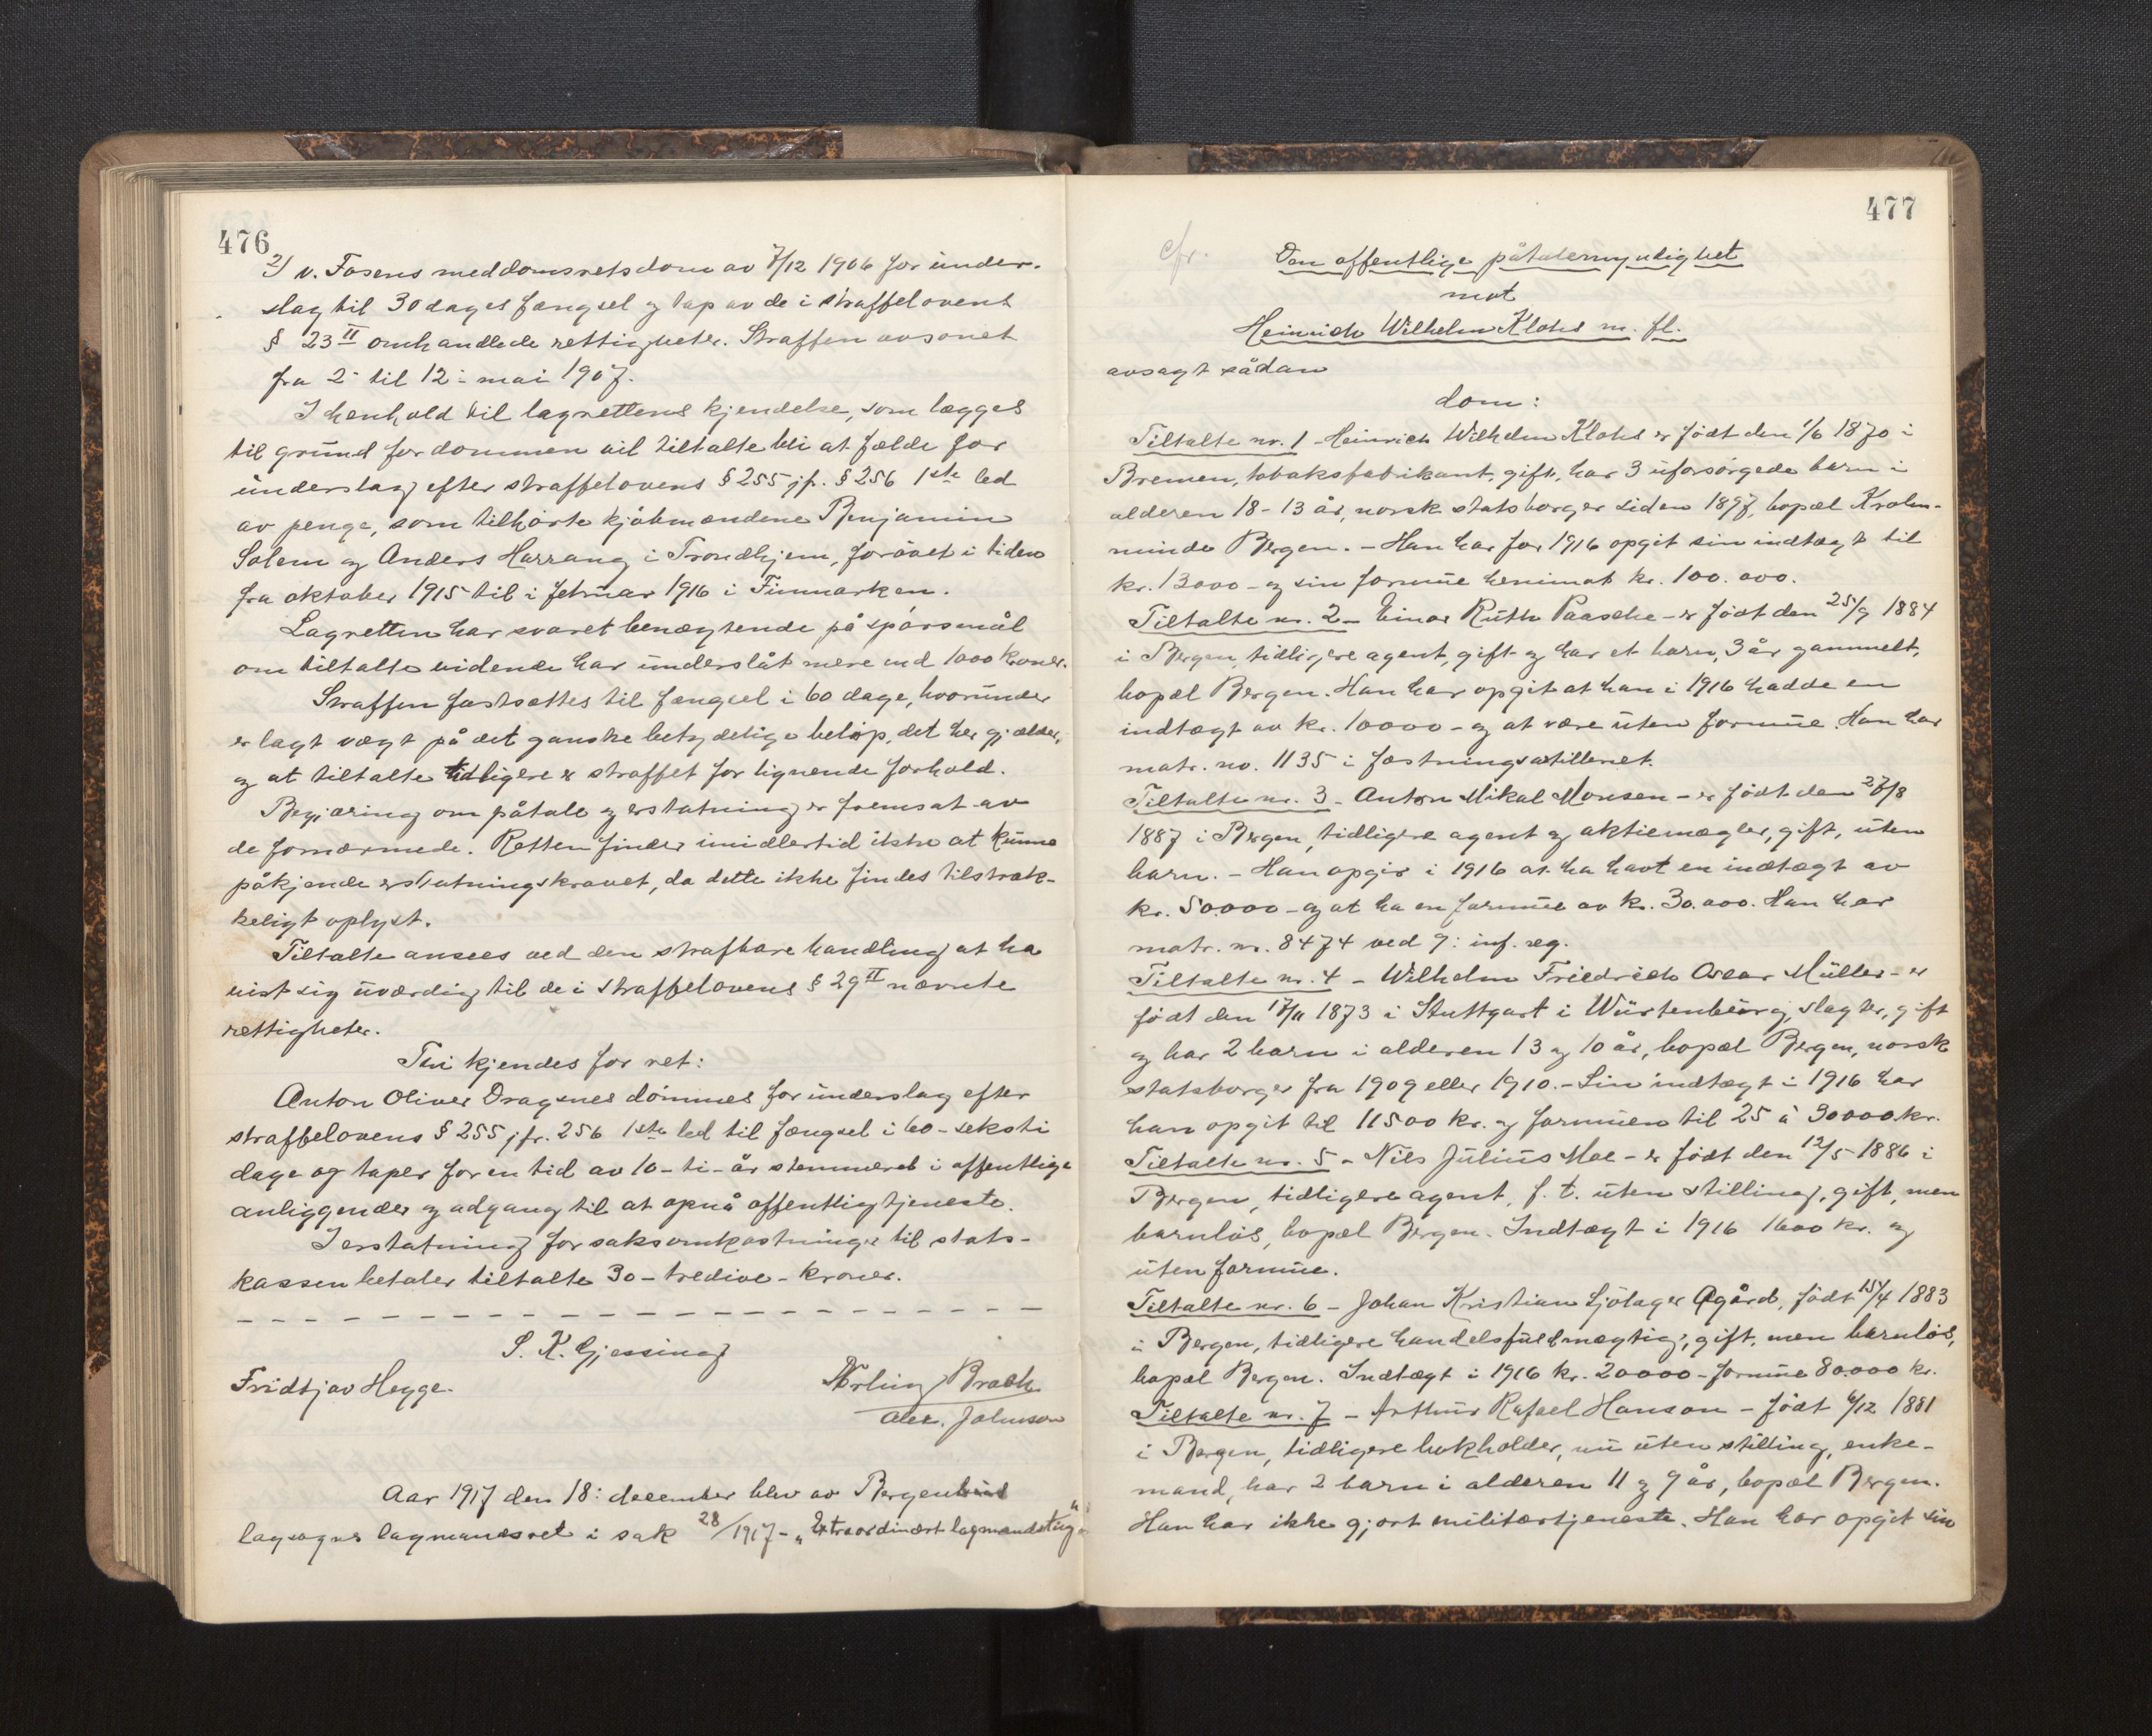 476
2) v. Fosens meddomsretsdom av 7/12 1906 for under-
slag til 30 dages fængsel og tap av de i straffelovens
§ 23 II omhandlede rettigheter. Straffen avsonet
fra 2. til 12. mai 1907.
I henhold til lagrettens kjendelse, som lægges
til grund for dommen vil tiltalte bli at fælde for
underslag efter straffelovens § 255 jf. § 256 1ste led
av penge, som tilhørte kjøbmændene Benjamin
Solem og Anders Harrang i Trondhjem, forøvet i tiden
fra oktober 1915 til i februar 1916 i Finmarken.
Lagretten har svaret benægtende på spørsmål
om tiltalte vidende har underslåt mere end 1000 kroner.
Straffen fastsættes til fængsel i 60 dage, hvorunder
er lagt vægt på det ganske betydelige beløp, det her gjælder,
og at tiltalte tidligere er straffet for lignende forhold.
Begjæring om påtale og erstatning er fremsat av
de fornærmede. Retten finder imidlertid ikke at kunne
påkjende erstatningskravet, da dette ikke findes tilstræk-
keligt oplyst.
Tiltalte ansees ved den strafbare handling at ha
vist sig uværdig til de i straffelovens § 29 II nævnte
rettigheter.
Thi kjendes for ret:
Anton Oliver Dragsnes dømmes for underslag efter
straffelovens § 255 jfr. 256 1ste led til fængsel i 60 - seksti
dage og taper for en tid av 10 - ti - år stemmeret i offentlige
anliggender og adgang til at opnå offentlig tjeneste.
I erstatning for saksomkostninger til stats-
kassen betaler tiltalte 30 - tredive - kroner.
S. K. Gjessing
Fridtjov Hegge. Erling Brach
Alex. Johnson
Aar 1917 den 18. december blev av Bergenhus
lagsogns lagmandsret i sak 28/1917 - "Extraordinært lagmandsting"
477
cfr. Den offentlige påtalemyndighet
mot
Heinrich Wilhelm Klohs m. fl.
avsagt sådan
dom:
Tiltalte nr. 1 - Heinrich Wilhelm Klohs er født den 1/6 1870 i
Bremen, tobaksfabrikant, gift, har 3 uforsørgede barn i
alderen 18 - 13 år, norsk statsborger siden 1897, bopæl Krohn-
minde Bergen. - Han har for 1916 opgit sin indtægt til
kr. 13000 - og sin formue henimot kr. 100.000.
Tiltalte nr. 2 - Einar Ruth Paasche - er født den 25/9 1884
i Bergen, tidligere agent, gift og har et barn, 3 år gammelt,
bopæl Bergen. Han har opgit at han i 1916 hadde en
indtægt av kr. 10000 - og at være uten formue. Han har
matr. no. 1135 i fæstningsartilleriet.
Tiltalte nr. 3 - Anton Mikal Monsen - er født den 27/8
1887 i Bergen, tidligere agent og aktiemægler, gift, uten
barn. - Han opgir i 1916 at ha havt en indtægt av
kr. 50.000 - og at ha en formue av kr. 30.000. Han har
matr. nr. 8474 ved 9. inf. reg.
Tiltalte nr. 4 - Wilhelm Friedrich Oscar Müller - er
født den 17/11 1873 i Stuttgart i Würtenberg, slagter, gift
og har 2 barn i alderen 13 og 10 år, bopæl Bergen, norsk
statsborger fra 1909 eller 1910. - Sin indtægt i 1916 har
han opgit til 11500 kr. og formuen til 25 à 30000 kr.
Tiltalte nr. 5 - Nils Julius Moe - er født den 12/5 1886 i
Bergen, tidligere agent, f. t. uten stilling, gift, men
barnløs, bopæl Bergen. Indtægt i 1916 1600 kr. og
uten formue.
Tiltalte nr. 6 - Johan Kristian Sjølager Øgård, født 15/4 1883
i Bergen, tidligere handelsfuldmægtig, gift, men barnløs,
bopæl Bergen. Indtægt i 1916 kr. 20000 - formue 80.000 kr.
Tiltalte nr. 7 - Arthur Rafael Hanson - født 6/12 1881
i Bergen, tidligere bokholder, nu uten stilling, enke-
mand, har 2 barn i alderen 11 og 9 år, bopæl Bergen.
Han har ikke gjort militærtjeneste. Han har opgit sin